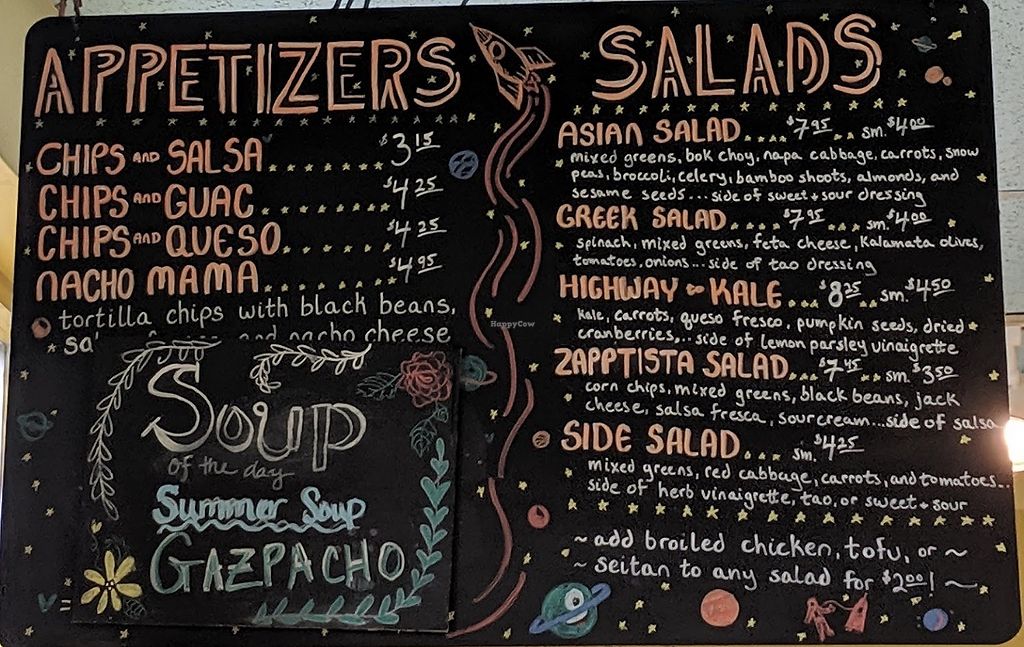 APPETIZERS
CHIPS AND SALSA......... $3.15
CHIPS AND GUAC......... $4.25
CHIPS AND QUESO......... $4.25
NACHO MAMA......... $4.95
tortilla chips with black beans,
and nacho cheese
Soup
of the day
Summer Soup
GAZPACHO
V=
HappyCow
SALADS
ASIAN SALAD.... $7.95 .. sm. $4.00
mixed greens, bok choy, napa cabbage, carrots, snow
peas, broccoli, celery, bamboo shoots, almonds, and
sesame seeds... side of sweet + sour dressing
GREEK SALAD.... $7.95 sm. $4.00
spinach, mixed greens, feta cheese, Kalamata olives,
tomatoes, onions... side of tao dressing
HIGHWAY to KALE... $8.25 .. sm. $4.50
Kale, carrots, queso fresco, pumpkin seeds, dried
cranberries,... side of lemon parsley vinaigrette
ZAPPTISTA SALAD... $7.45 .. sm. $3.50
corn chips, mixed greens, black beans, jack
cheese, salsa fresca, sour cream... side of salsa
SIDE SALAD... sm. $4.25
mixed greens, red cabbage, carrots, and tomatoes...
side of herb vinaigrette, tao, or sweet + sour
~ add broiled chicken, tofu, or ~
~ seitan to any salad for $2.00! ~